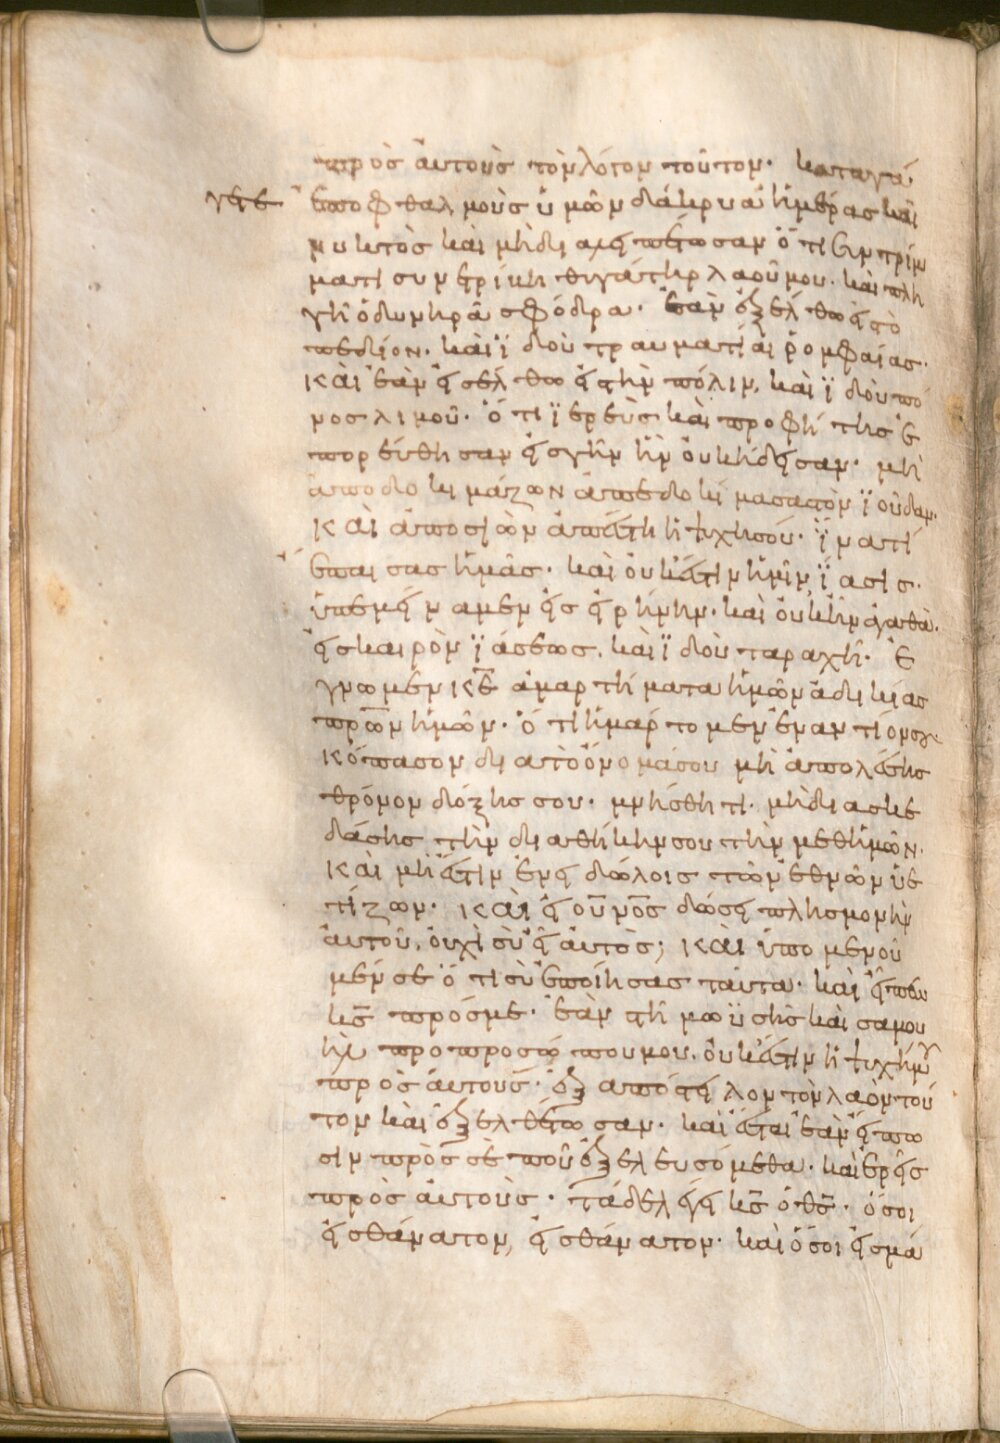 πρὸς ἀυτοὺς τὸν λόγον τοῦτον· καταγά
γετε ἐπ ὀφθαλμοὺς ὑμῶν δάκρυα ἡμέρας καὶ
νυκτὸς καὶ μὴ διαλειπέτωσαν ὅτι συντρίμ
ματι συνετρίβη θυγάτηρ λαοῦ μου· καὶ πλη
γῆ ὀδυνηρᾶ σφόδρα· ἐὰν ἐξέλθω εἰς τὸ
πεδίον· καὶ ϊδοὺ τραυματίαι ρομφαίας·
καὶ ἐὰν εἰσέλθω εἰς τὴν πόλιν, καὶ ϊδοὺ πό
νος λιμοῦ· ὅτι ϊερεὺς καὶ προφήτης ἐ
πορεύθησαν εἰς γῆν ἣν οὐκ ήδεισαν· μὴ
ἀποδοκιμάζων ἀπεδοκίμασας τὸν ϊούδαν·
καὶ ἀπὸ σιὼν ἀπέστη ἡ ψυχή σου· ϊνατί
ἔπαισας ἡμᾶς· καὶ οὐκ ἔστιν ἡμῖν ϊασις·
ὑπεμείναμεν εἰς εἰρήνην· καὶ οὐκ ἦν ἀγαθά·
εἰς καιρὸν ϊάσεως, καὶ ϊδοὺ ταραχή· ἔ
γνωμεν κ̅ε̅ ἁμαρτήματα ἡμῶν ἀδικίας
π̅ρ̅ω̅ν ἡμῶν· ὅτι ἡμάρτομεν ἐναντίον σου
κόπασον διὰ τὸ ὄνομά σου μὴ ἀπολέσης
θρόνον δόξης σου· μνήσθητι· μὴ διασκε
δάσης τὴν διαθήκην σου τὴν μεθ ἡμῶν·
καὶ μὴ ἔστιν ἐν εἰδώλοις τῶν ἐθνῶν ὑε
τίζων· καὶ εἰ ο̅υ̅ν̅ο̅ς̅ δώσει πλησμονὴν
ἀυτοῦ, οὐχὶ σὺ εἶ ἀυτός; καὶ ὑπομενοῦ
μέν σε ὅτι σὺ ἐποίησας ταῦτα· καὶ εἶπεν
κ̅ς̅ πρός με· ἐὰν στῆ μωϋσῆς καὶ σαμου
ὴλ πρὸ προσώπου μου, οὐκ ἔστιν ἡ ψυχή μου
πρὸς ἀυτούς· ἐξαπόστειλον τὸν λαὸν τοῦ
τον καὶ ἐξελθέτωσαν· καὶ ἔσται ἐὰν εἴπω
σιν πρὸς σὲ ποῦ ἐξελευσόμεθα· καὶ ἐρεῖς
πρὸς ἀυτούς· τάδε λέγει κ̅ς̅ ὁ θ̅ς̅· ὅσοι
εἰς θάνατον, εἰς θάνατον· καὶ ὅσοι εἰς μά